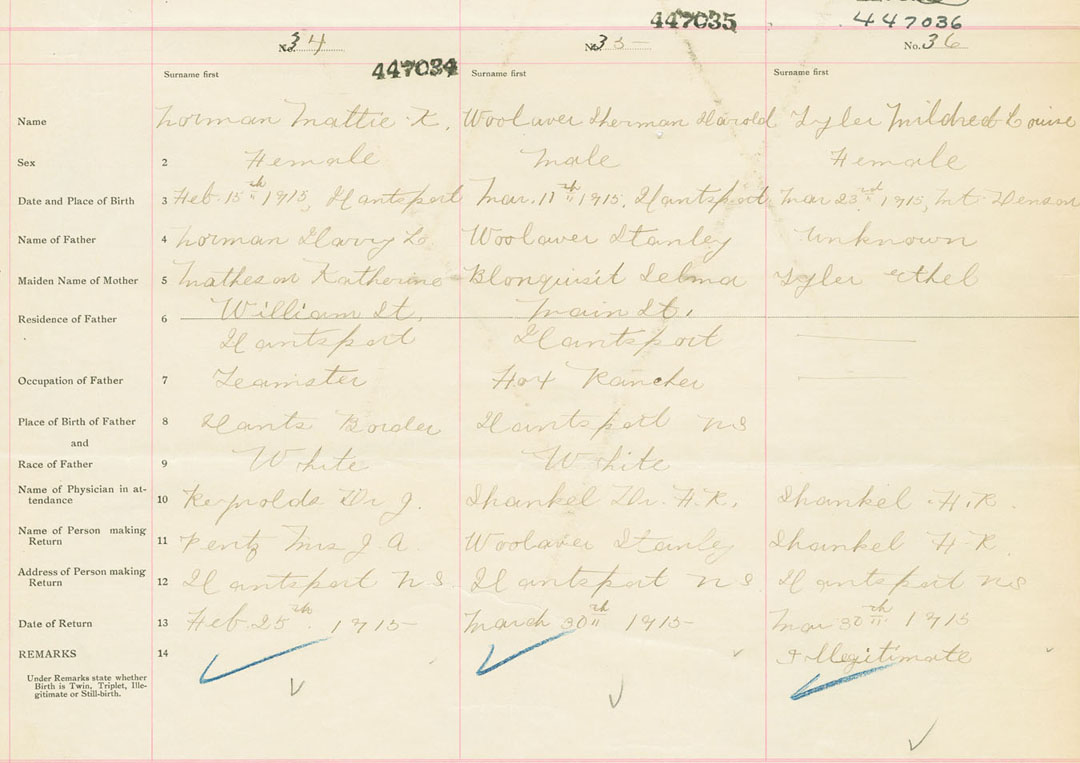 447035
447036
No. 34
No. 35
No. 36
Surname first 447034 Surname first Surname first
Name Lorman Mattie K. Woolaver Sherman Harold Tyler Mildred Louise
Sex 2 Female Male Female
Date and Place of Birth 3 Feb. 15th 1915, Hantsport Mar. 11th 1915, Hantsport Mar 23rd 1915, Mt Denson
Name of Father 4 Lorman Harry Woolaver Stanley Unknown
Maiden Name of Mother 5 Matheson Katherine Blonquisit Selma Tyler Ethel
Residence of Father 6 William St. Main St.
Hantsport Hantsport
Occupation of Father 7 Teamster Fox Rancher
Place of Birth of Father 8 Hants Border Hantsport NS
and
Race of Father 9 White White
Name of Physician in at-
tendance 10 Reynolds Dr J. Shankel Dr. F.R. Shankel F.R.
Name of Person making
Return 11 Pentz Mrs J. A. Woolaver Stanley Shankel F R
Address of Person making
Return 12 Hantsport N.S. Hantsport NS Hantsport NS
Date of Return 13 Feb. 25th 1915 March 30th 1915 Mar 30th 1915
REMARKS 14 Illegitimate
Under Remarks state whether
Birth is Twin, Triplet, Ille-
gitimate or Still-birth.